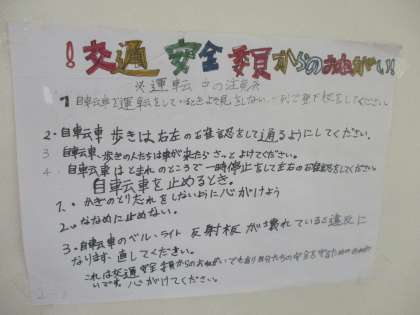 ！交通安全委員からのおねがい！
※運転中の注意※
1 自転車を運転をしているときよそ見をしない。一列で登下校をしてください。
2・自転車歩きは、右左の確認をして通るようにしてください。
3 自転車、歩きの人たちは車が来たらさっとよけてください。
4 自転車はとまれのところで一時停止をして左右の確認をしてください。
自転車を止めるとき。
1．かぎのとりわすれをしないように心がけよう
2．ななめに止めない。
3・自転車のベル、ライト 反射板が壊れていると違反に
なります、直してください。
これは交通安全委員からのおねがいでもあり自分たちの安全を守るための
心がけてください。